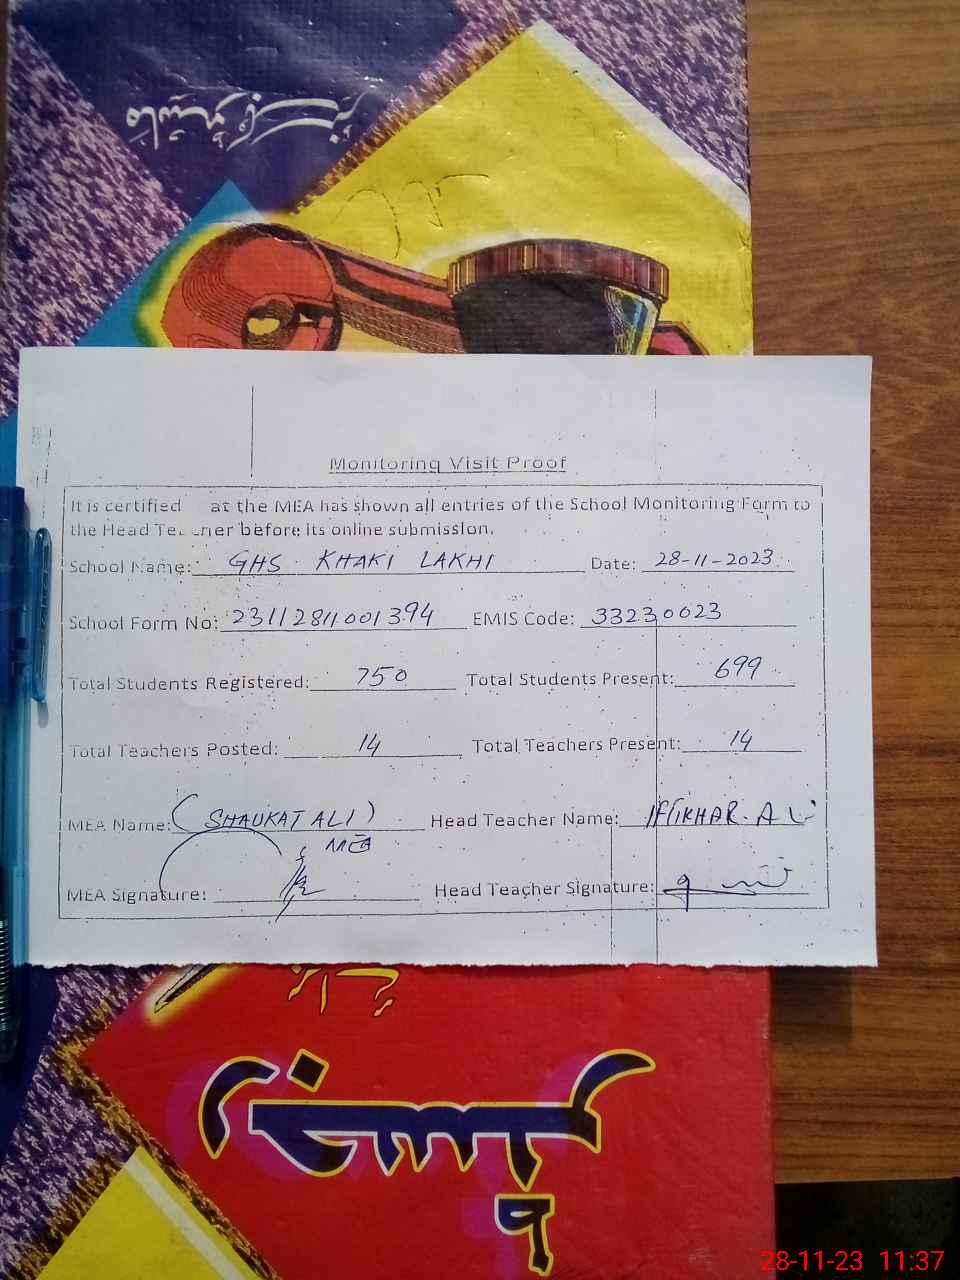 Monitoring Visit Proof
It is certified at the MEA has shown all entries of the School Monitoring Form to
the Head Te cher before its online submission.
School Name: GHS KHAKI LAKHI Date: 28-11-2023
School Form No: 23112811001394 EMIS Code: 33230023
Total Students Registered: 750 Total Students Present: 699
Total Teachers Posted: 14 Total Teachers Present: 14
MEA Name: (SHAUKAT ALI) Head Teacher Name: IFTIKHAR. ALI
MEA
MEA Signature: Head Teacher Signature:
28-11-23 11:37